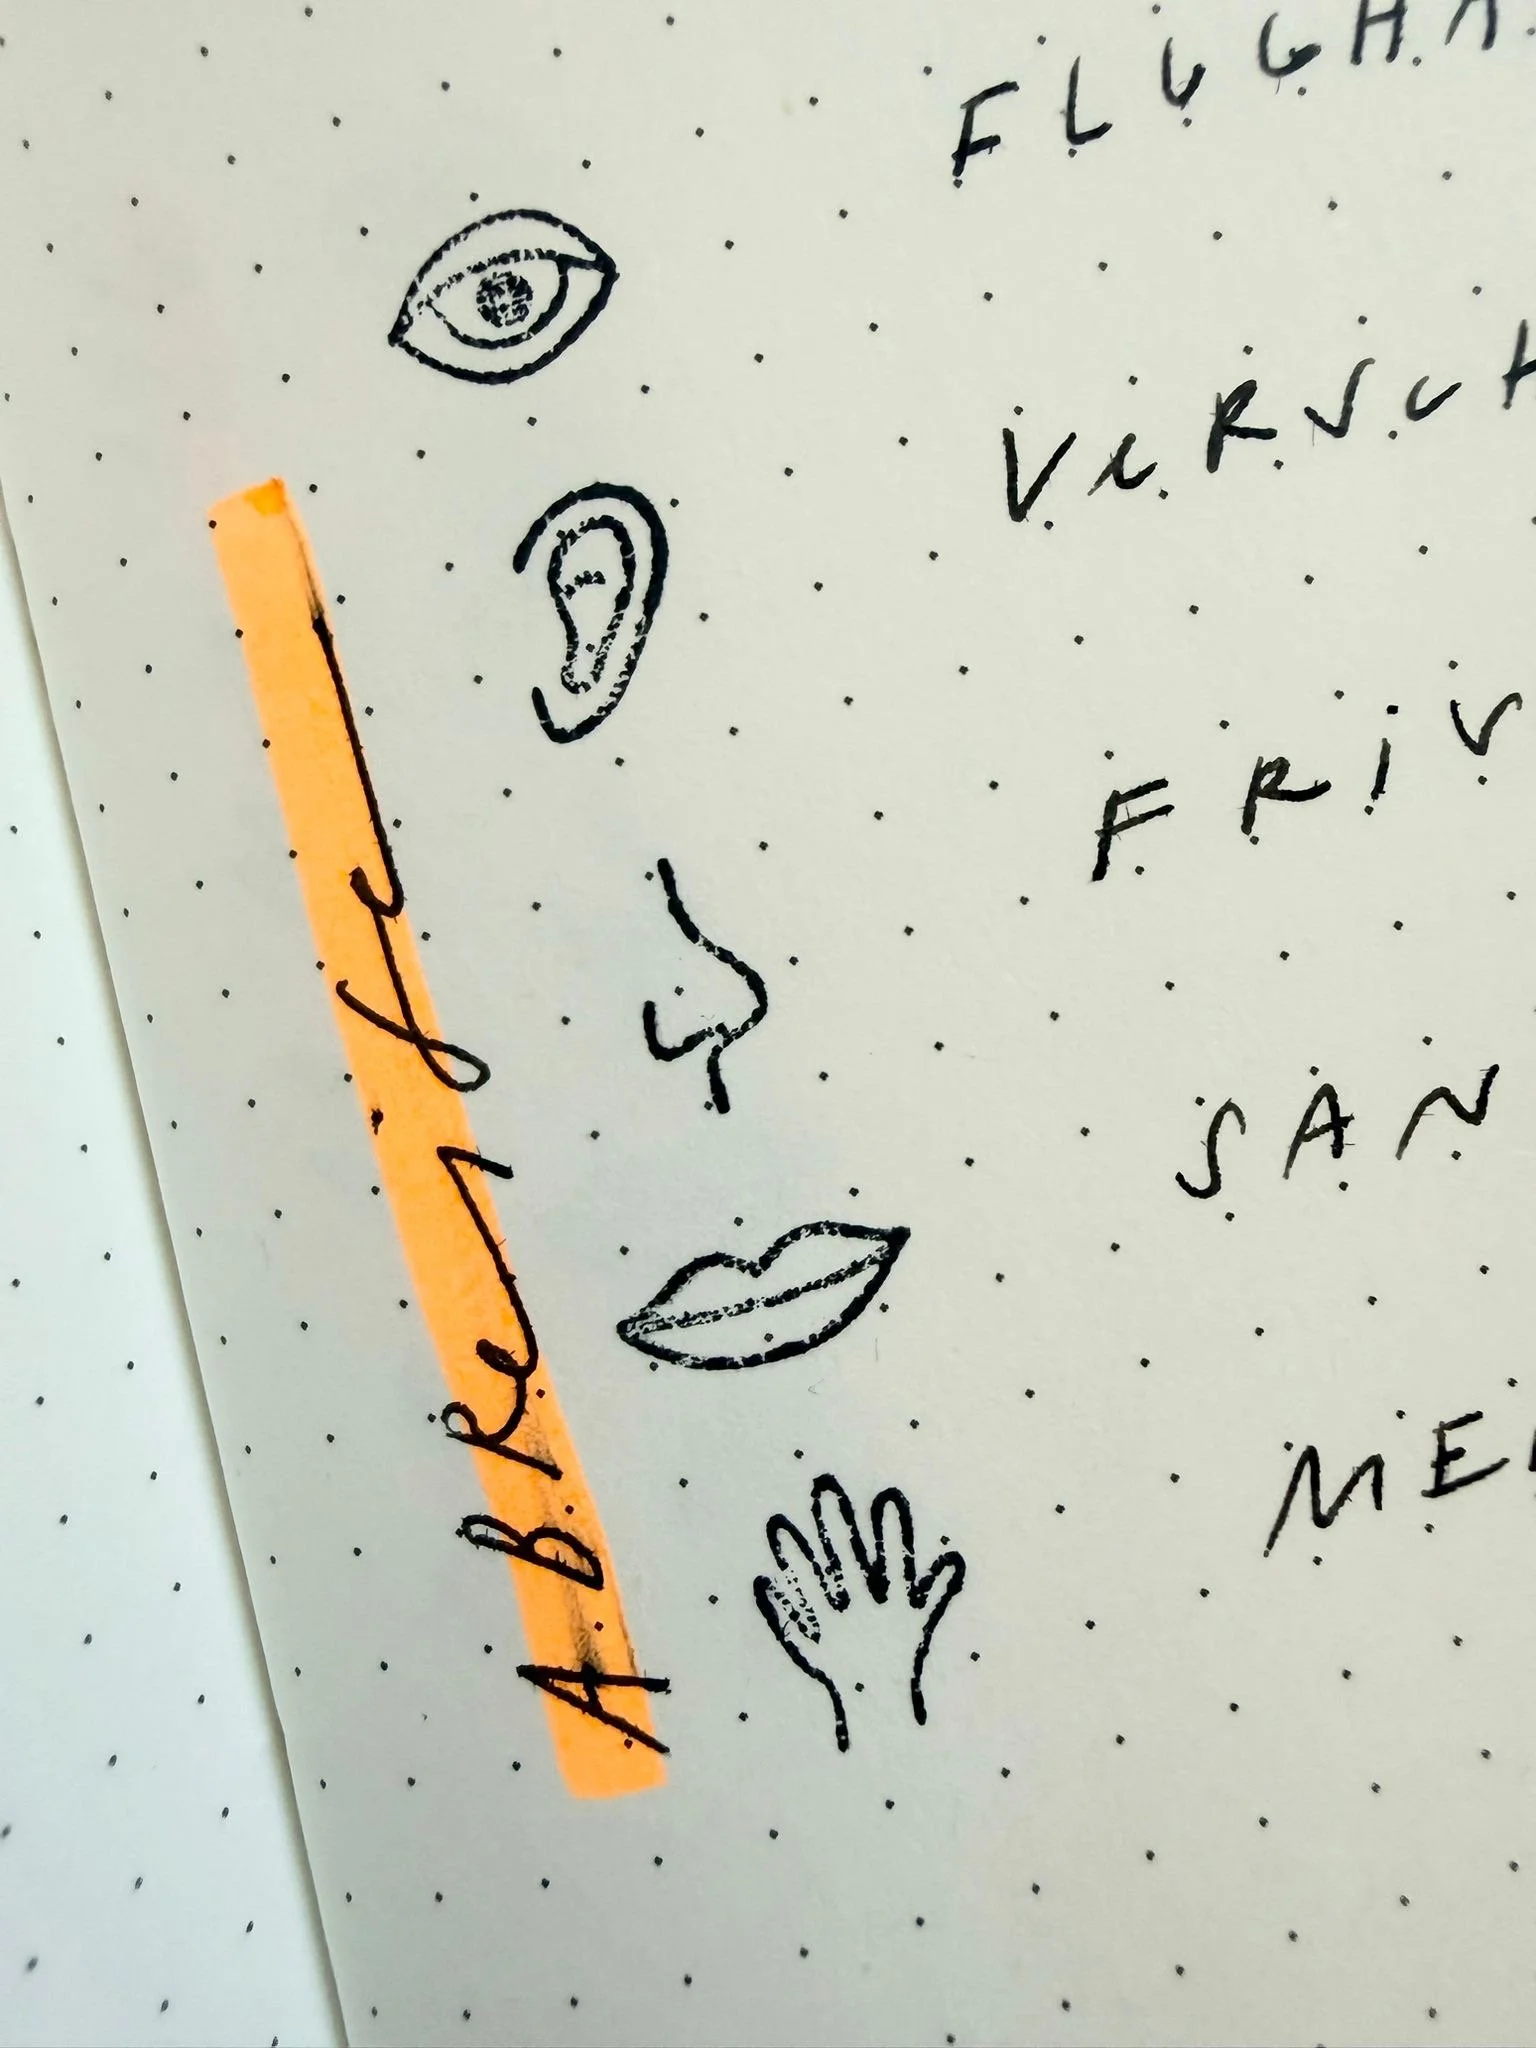 ABReise
FLUGHA
VeRSCH
FRiS
SAN
ME